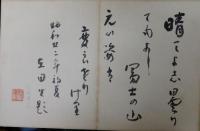 晴てよし曇り
てもよし 冨士の山
元の姿は
変らざり
けり
昭和廿二年初夏